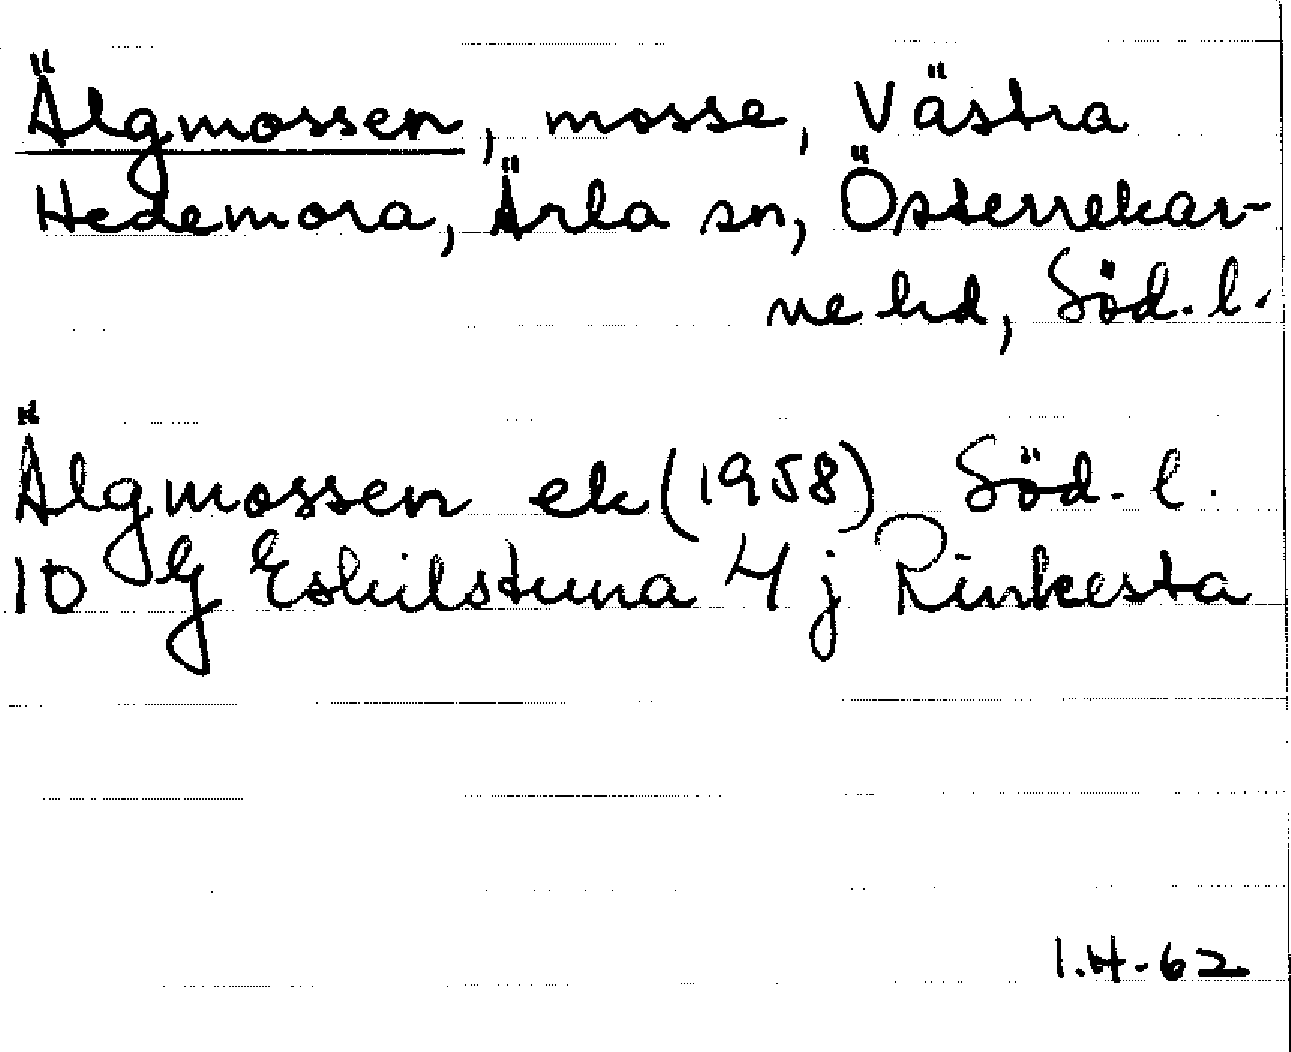 Älgmossen, mosse, Västra
Hedemora, Ärla sn, Österrekar-
ne hd, Söd. l.
Älgmossen ek (1958) Söd. l.
10 G Eskilstuna 4 j Rinkesta
I.H-62